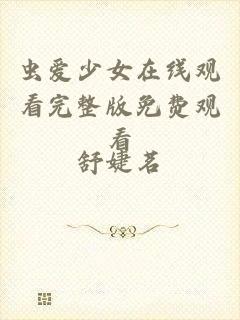 虫爱少女在线观
看完整版免费观
看
舒婕茗